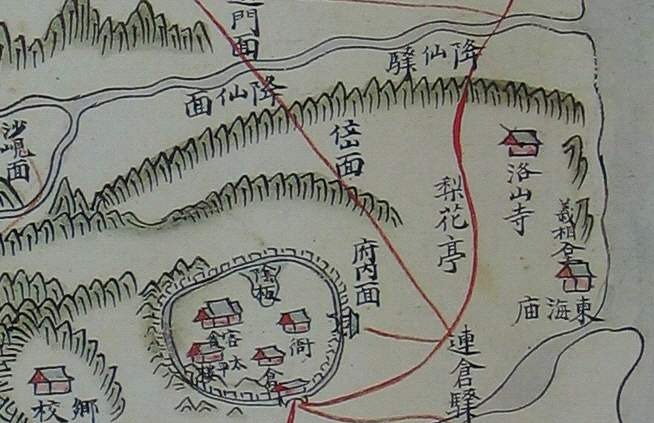 門面
降仙驛
降仙面
沙峴面
位面
洛山寺
梨花亭
義相臺
府內面
東海庙
客舍
衙
太平樓
倉
連倉驛
鄕校